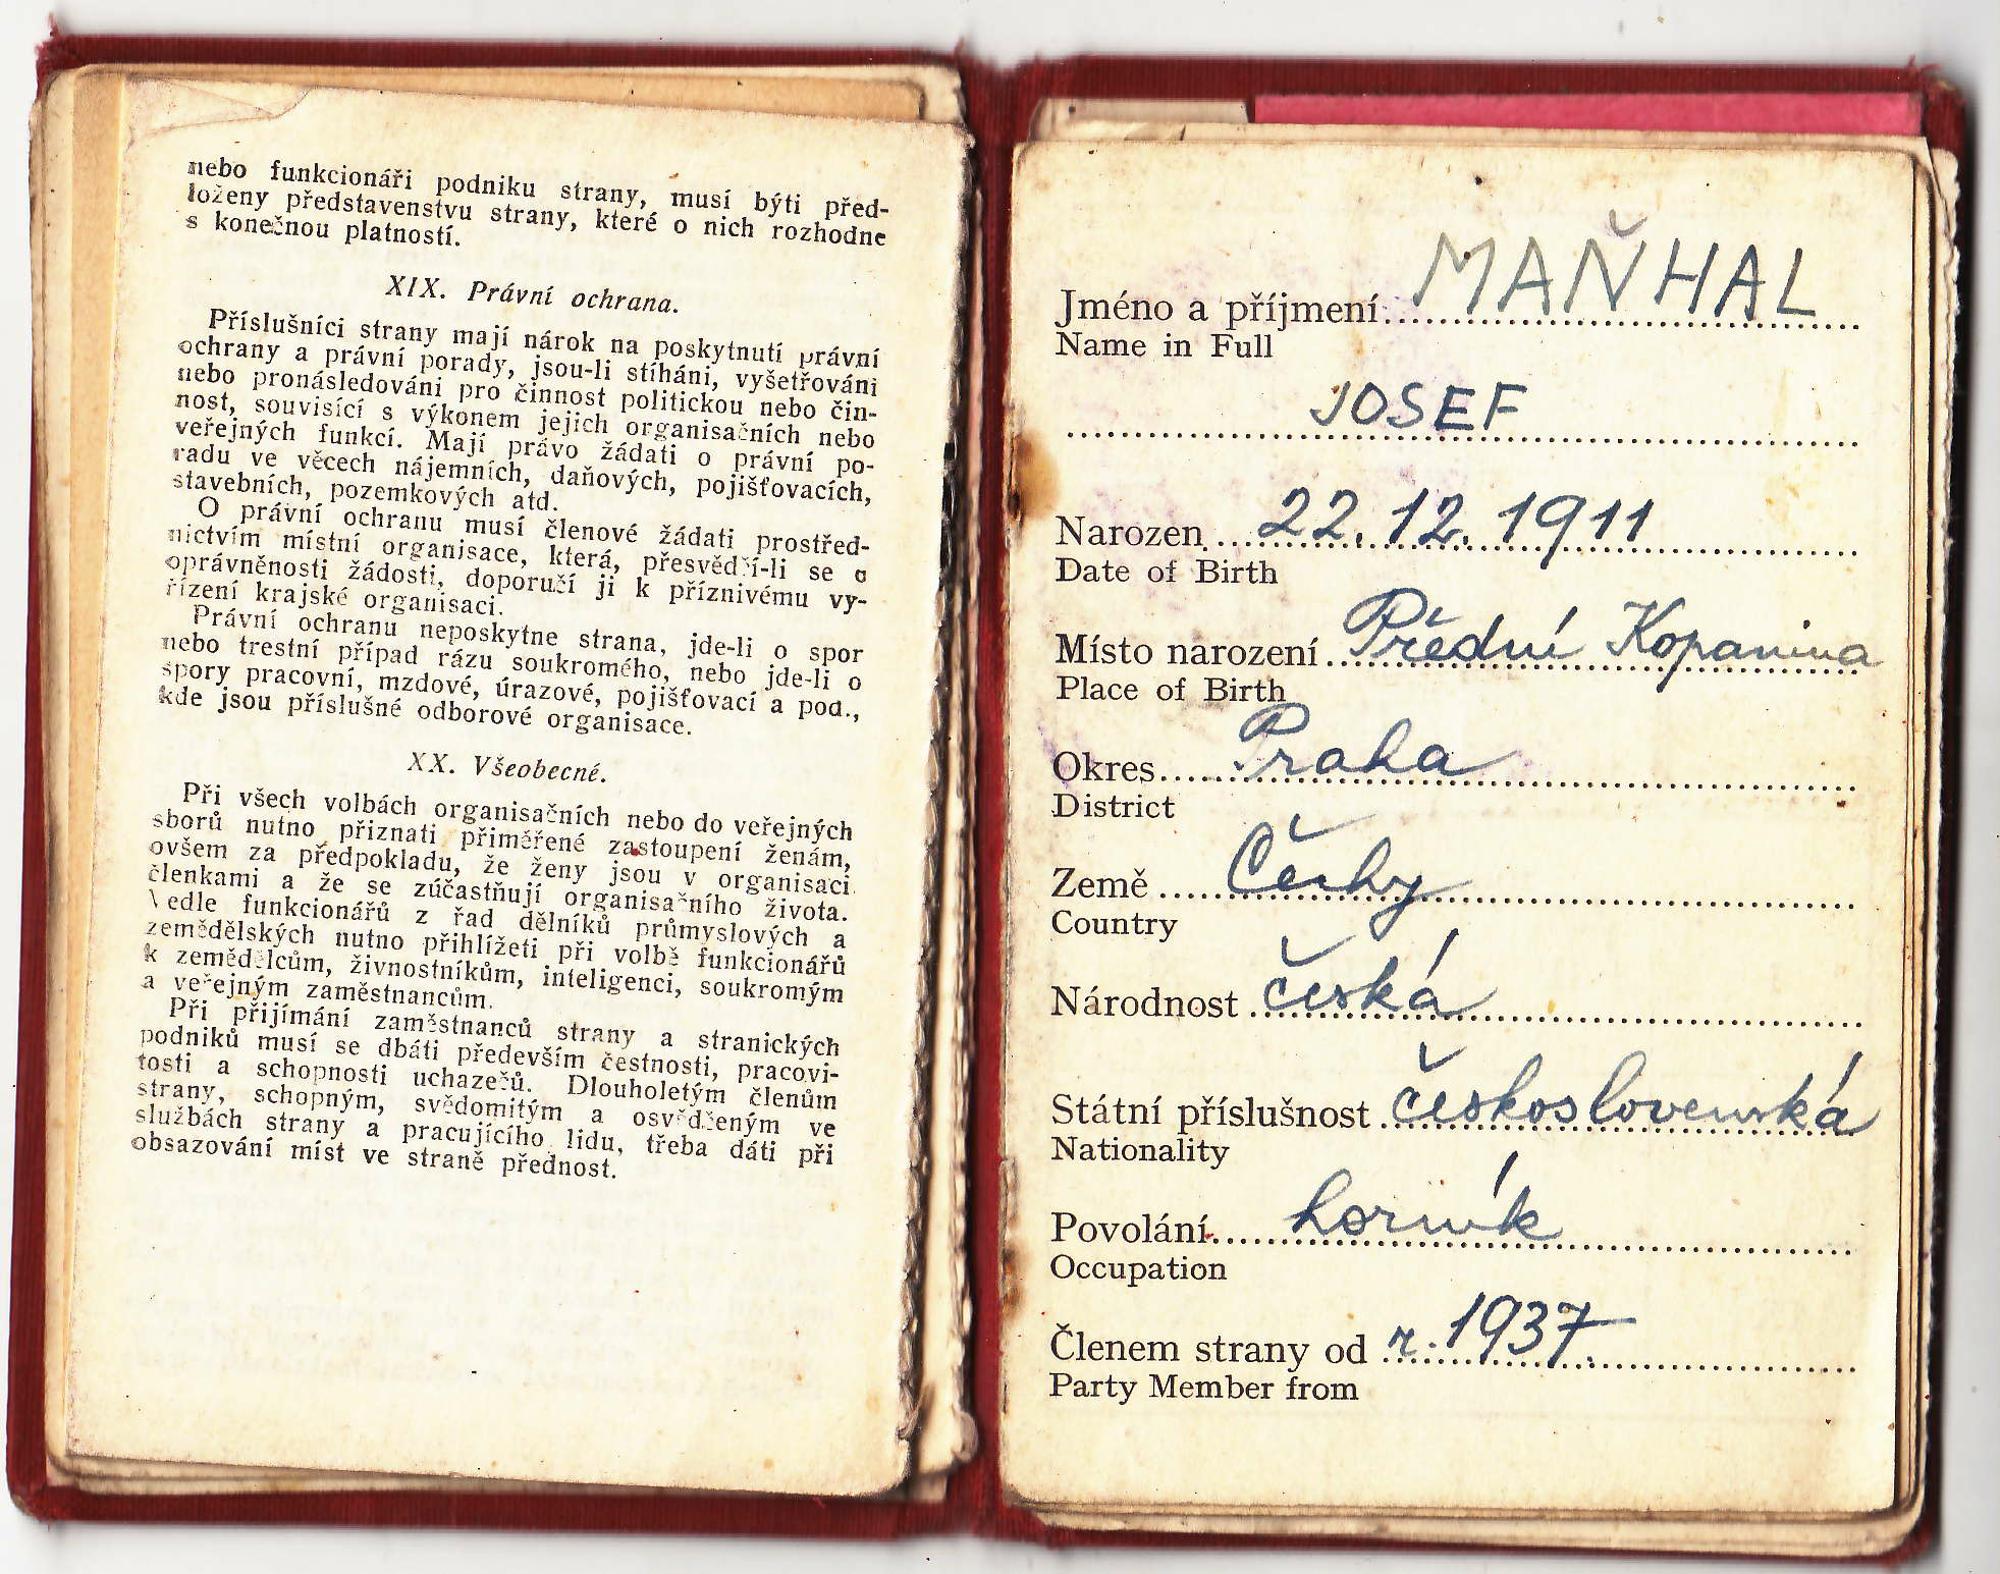 nebo funkcionáři podniku strany, musí býti před-
loženy představenstvu strany, které o nich rozhodne
s konečnou platností.
XIX. Právní ochrana.
Příslušníci strany mají nárok na poskytnutí právní
ochrany a právní porady, jsou-li stíháni, vyšetřováni
nebo pronásledováni pro činnost politickou nebo čin-
nost, souvisící s výkonem jejich organisačních nebo
veřejných funkcí. Mají právo žádati o právní po-
radu ve věcech nájemních, daňových, pojišťovacích,
stavebních, pozemkových atd.
O právní ochranu musí členové žádati prostřed-
nictvím místní organisace, která, přesvědčí-li se o
oprávněnosti žádosti, doporučí ji k příznivému vy-
řízení krajské organisaci.
Právní ochranu neposkytne strana, jde-li o spor
nebo trestní případ rázu soukromého, nebo jde-li o
spory pracovní, mzdové, úrazové, pojišťovací a pod.,
kde jsou příslušné odborové organisace.
XX. Všeobecné.
Při všech volbách organisačních nebo do veřejných
sborů nutno přiznati přiměřené zastoupení ženám,
ovšem za předpokladu, že ženy jsou v organisaci
členkami a že se zúčastňují organisačního života.
Vedle funkcionářů z řad dělníků průmyslových a
zemědělských nutno přihlížeti při volbě funkcionářů
k zemědělcům, živnostníkům, inteligenci, soukromým
a veřejným zaměstnancům.
Při přijímání zaměstnanců strany a stranických
podniků musí se dbáti především čestnosti, pracovi-
tosti a schopnosti uchazečů. Dlouholetým členům
strany, schopným, svědomitým a osvědčeným ve
službách strany a pracujícího lidu, třeba dáti při
obsazování míst ve straně přednost.
Jméno a příjmení MAŇHAL
Name in Full
JOSEF
Narozen 22. 12. 1911
Date of Birth
Místo narození Přední Kopanina
Place of Birth
Okres Praha
District
Země Čechy
Country
Národnost česká
Státní příslušnost československá
Nationality
Povolání horník
Occupation
Členem strany od r. 1937
Party Member from